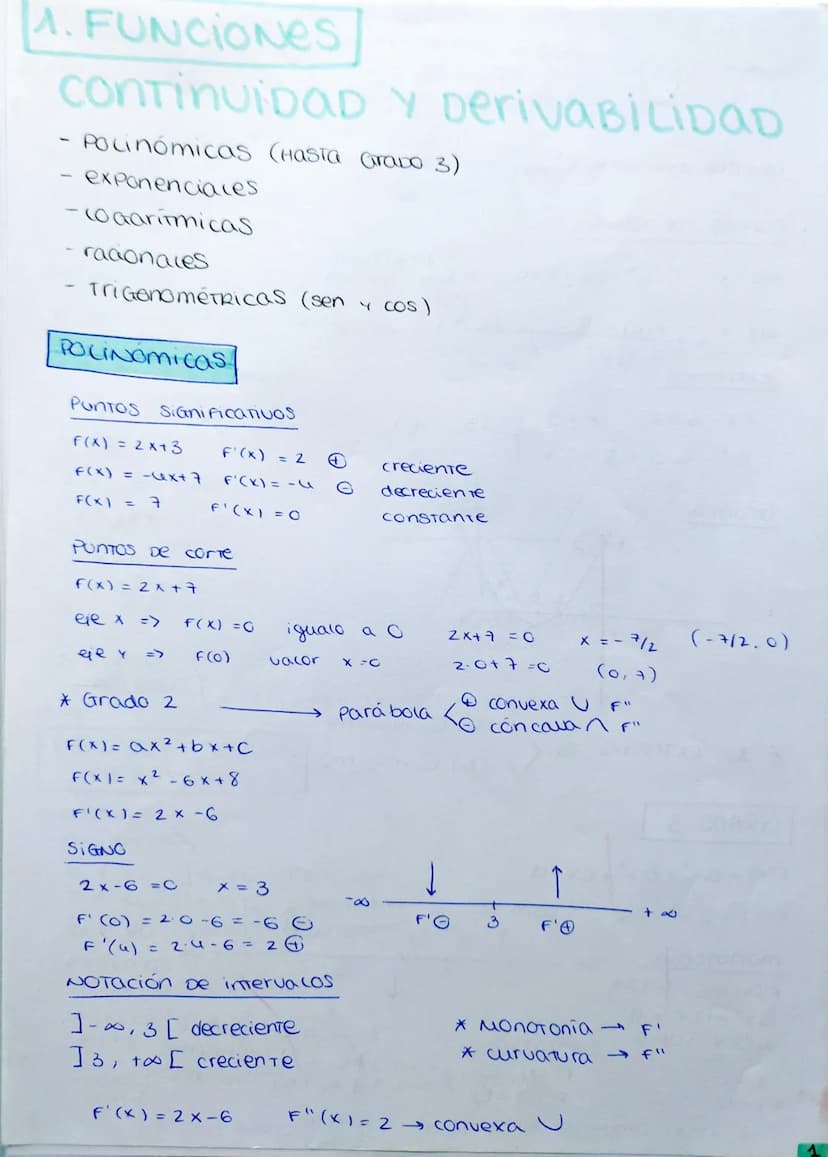 1. FUNCIONES
CONTINUIDAD Y DERIVABILIDAD
- POLINÓMICAS (HASTA GRADO 3)
- EXPONENCIALES
- LOGARÍTMICAS
- RACIONALES
- TRIGONOMÉTRICAS (sen y cos)
POLINÓMICAS
PUNTOS SIGNIFICATIVOS
F(x) = 2x+3 F'(x) = 2 ⊕ creciente
F(x) = -4x+7 F'(x) = -4 ⊖ decreciente
F(x) = 7 F'(x) = 0 constante
PUNTOS DE CORTE
F(x) = 2x+7
eje x => F(x) = 0 igualo a 0 2x+7 = 0 x = -7/2 (-7/2, 0)
eje y => F(0) valor x = 0 2·0+7 = 0 (0, 7)
* Grado 2 → parábola < ⊕ convexa ∪ F''
⊖ cóncava ∩ F''
F(x) = ax²+bx+c
F(x) = x² - 6x+8
F'(x) = 2x - 6
SIGNO
2x-6 = 0 x = 3
F'(0) = 2·0 - 6 = -6 ⊖
F'(4) = 2·4 - 6 = 2 ⊕
↓ ↑
-∞ +∞
F'⊖ 3 F'⊕
NOTACIÓN DE INTERVALOS
]-∞, 3[ decreciente * MONOTONÍA → F'
]3, +∞[ creciente * CURVATURA → F''
F'(x) = 2x-6 F''(x) = 2 → convexa ∪
1